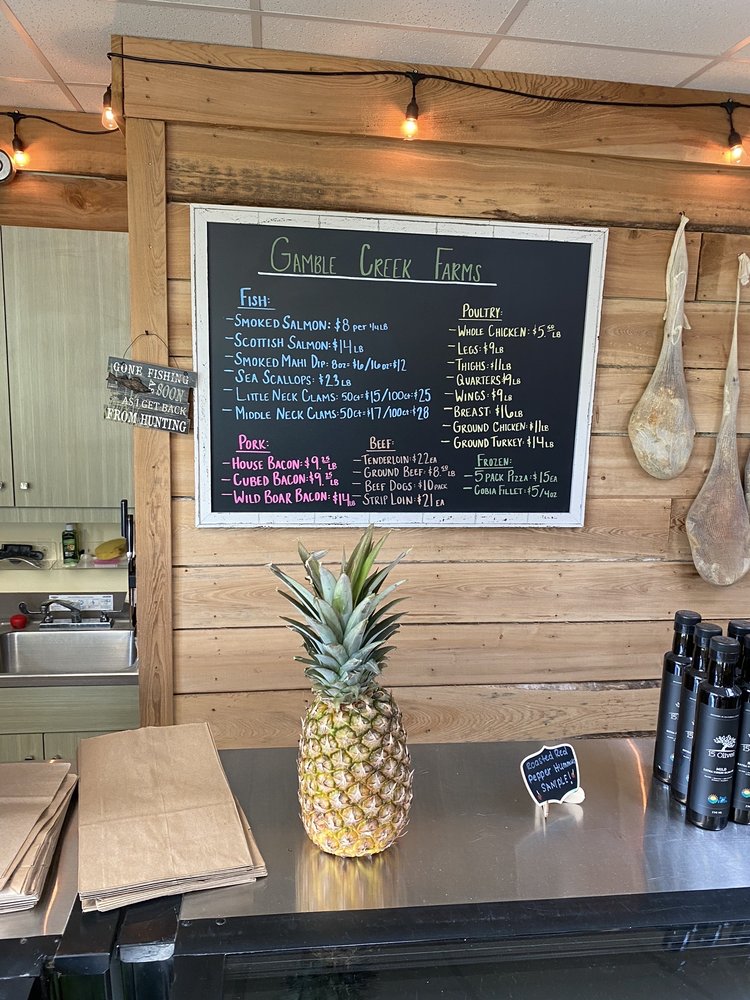 GAMBLE CREEK FARMS
FISH:
-SMOKED SALMON: $8 PER 1/4 LB
-SCOTTISH SALMON: $14 LB
-SMOKED MAHI DIP: 8oz=$6/16oz=$12
-SEA SCALLOPS: $23 LB
-LITTLE NECK CLAMS: 50CT=$15/100CT=$25
-MIDDLE NECK CLAMS: 50CT=$17/100CT=$28
POULTRY:
-WHOLE CHICKEN: $5.50 LB
-LEGS: $9 LB
-THIGHS: $11 LB
-QUARTERS $9 LB
-WINGS: $9 LB
-BREAST: $16 LB
-GROUND CHICKEN: $11 LB
-GROUND TURKEY: $14 LB
PORK:
-HOUSE BACON: $9.25 LB
-CUBED BACON: $9.25 LB
-WILD BOAR BACON: $14 LB
BEEF:
-TENDERLOIN: $22 EA
-GROUND BEEF: $8.50 LB
-BEEF DOGS: $10 PACK
-STRIP LOIN: $21 EA
FROZEN:
-5 PACK PIZZA: $15 EA
-COBIA FILLET: $5/4oz
GONE FISHING
SOON
AS I GET BACK
FROM HUNTING
Roasted Red
Pepper Hummus
SAMPLE!
15 Olives
MILD